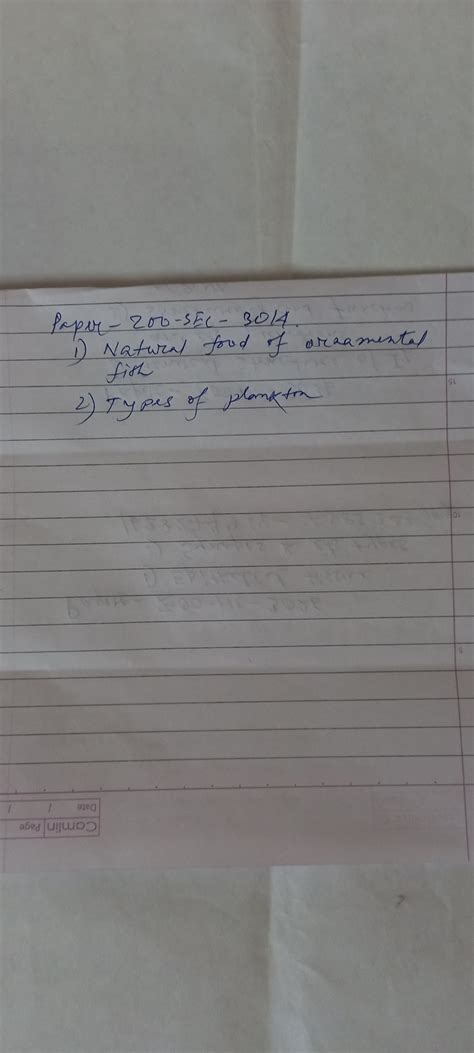 Paper - ZOO-SEC - 3014.
1) Natural food of ornamental
fish
2) Types of plankton
15
10
5
Date / /
Camlin Page